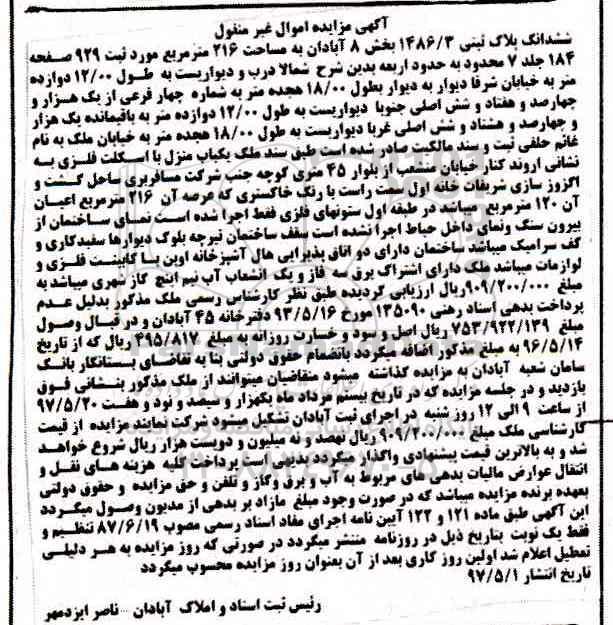 آگهی مزایده اموال غیر منقول
ششدانگ پلاک ثبتی ۱۴۸۶/۳ بخش ۸ آبادان به مساحت ۲۱۶ مترمربع مورد ثبت ۹۲۹ صفحه
۱۸۴ جلد ۷ محدود به حدود اربعه بدین شرح شمالا درب و دیواریست به طول ۱۲/۰۰ دوازده
متر به خیابان شرقا دیوار به دیوار بطول ۱۸/۰۰ هجده متر به شماره چهار فرعی از یک هزار و
چهارصد و هفتاد و شش اصلی جنوبا دیواریست به طول ۱۲/۰۰ دوازده متر به باقیمانده یک هزار
و چهارصد و هشتاد و شش اصلی غربا دیواریست به طول ۱۸/۰۰ هجده متر به خیابان ملک به نام
غانم حلفی ثبت و سند مالکیت صادر شده است طبق سند ملک یکباب منزل با اسکلت فلزی به
نشانی اروند کنار خیابان منشعب از بلوار ۴۵ متری کوچه جنب شرکت مسافربری ساحل گشت و
اگزوز سازی شریفات خانه اول سمت راست با رنگ خاکستری که عرصه آن ۲۱۶ مترمربع اعیان
آن ۱۲۰ مترمربع میباشد در طبقه اول ستونهای فلزی فقط اجرا شده است نمای ساختمان از
بیرون سنگ ونمای داخل حیاط اجرا نشده است سقف ساختمان تیرچه بلوک دیوارها سفیدکاری و
کف سرامیک میباشد ساختمان دارای دو اتاق پذیرایی هال آشپزخانه اوپن با کابینت فلزی و
لوازمات میباشد ملک دارای اشتراک برق سه فاز و یک انشعاب آب نیم اینچ گاز شهری میباشد به
مبلغ ۹۰۹/۲۰۰/۰۰۰ریال ارزیابی گردیده طبق نظر کارشناس رسمی ملک مذکور بدلیل عدم
پرداخت بدهی اسناد رهنی ۱۳۵۰۹۰ مورخ ۹۳/۵/۱۶ دفترخانه ۴۵ آبادان و در قبال وصول
مبلغ ۷۵۳/۹۲۲/۱۳۹ ریال اصل و سود و خسارت روزانه به مبلغ ۴۹۵/۸۱۷ ریال که از تاریخ
۹۶/۵/۱۴ به مبلغ مذکور اضافه میگردد بانضمام حقوق دولتی بنا به تقاضای بستانکار بانک
سامان شعبه آبادان به مزایده گذاشته میشود متقاضیان میتوانند از ملک مذکور بنشانی فوق
بازدید و در جلسه مزایده که در تاریخ بیستم مرداد ماه یکهزار و سیصد و نود و هفت ۹۷/۵/۲۰
از ساعت ۹ الی ۱۲ روز شنبه در اجرای ثبت آبادان تشکیل میشود شرکت نمایند مزایده از قیمت
کارشناسی ملک مبلغ ۹۰۹/۲۰۰/۰۰۰ ریال نهصد و نه میلیون و دویست هزار ریال شروع خواهد
شد و به بالاترین قیمت پیشنهادی واگذار میگردد بدیهی است پرداخت کلیه هزینه های نقل و
انتقال عوارض مالیات بدهی های مربوط به آب و برق وگاز و تلفن و حق مزایده و حقوق دولتی
بعهده برنده مزایده میباشد که در صورت وجود مبلغ مازاد بر بدهی از مدیون وصول میگردد
این آگهی طبق ماده ۱۲۱ و ۱۲۲ آیین نامه اجرای مفاد اسناد رسمی مصوب ۸۷/۶/۱۹ تنظیم و
فقط یک نوبت بتاریخ ذیل در روزنامه منتشر میگردد در صورتی که روز مزایده به هر دلیلی
تعطیل اعلام شد اولین روز کاری بعد از آن بعنوان روز مزایده محسوب میگردد
تاریخ انتشار ۹۷/۵/۱
رئیس ثبت اسناد و املاک آبادان - ناصر ایزدمهر